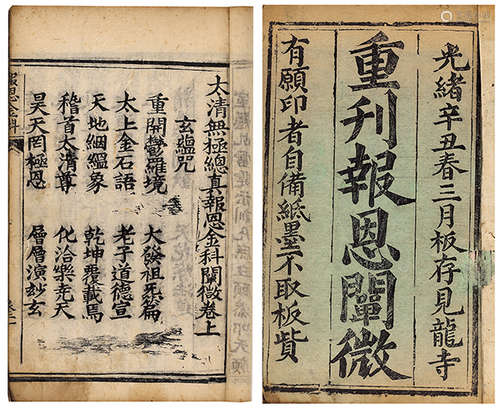 光緒辛丑春三月板存見龍寺
重刊報恩闡微
有願印者自備紙墨不取板貲
太清無極總真報恩金科闡微卷上
玄蘊咒
重開鬱羅境 大啟祖炁篇
太上金石語 老子道德宣
天地絪縕象 乾坤覆載馬
稽首太清尊 化洽樂堯天
昊天罔極恩 層層演妙玄